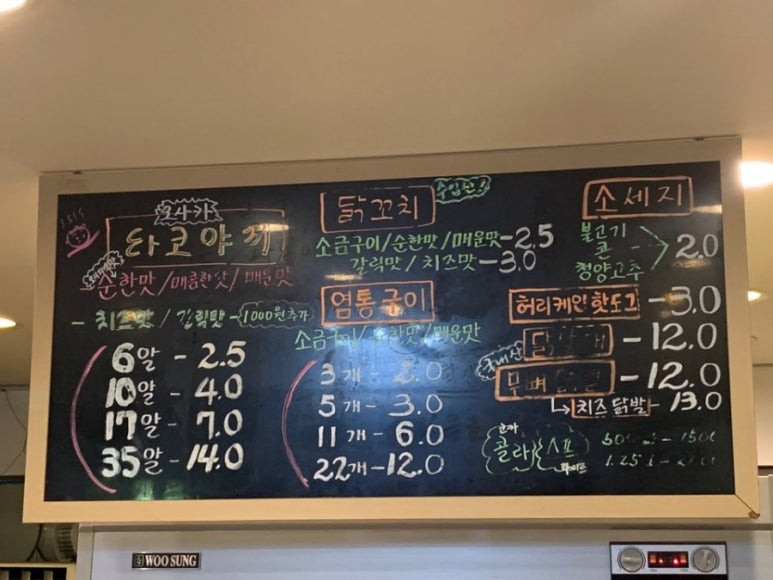 오사카
타코야끼
오리지널
순한맛 / 매콤한맛 / 매운맛
- 치즈맛 / 갈릭맛 - 1000원추가
6알 - 2.5
10알 - 4.0
17알 - 7.0
35알 - 14.0
닭꼬치
소금구이/순한맛/매운맛 - 2.5
갈릭맛/치즈맛 - 3.0
염통구이
소금구이/순한맛/매운맛
3개 - 2.0
5개 - 3.0
11개 - 6.0
22개 - 12.0
소세지
불고기
콘
청양고추
2.0
허리케인핫도그 - 3.0
- 12.0
국내산
무뼈닭발 - 12.0
치즈닭발 - 13.0
콜라
WOO SUNG